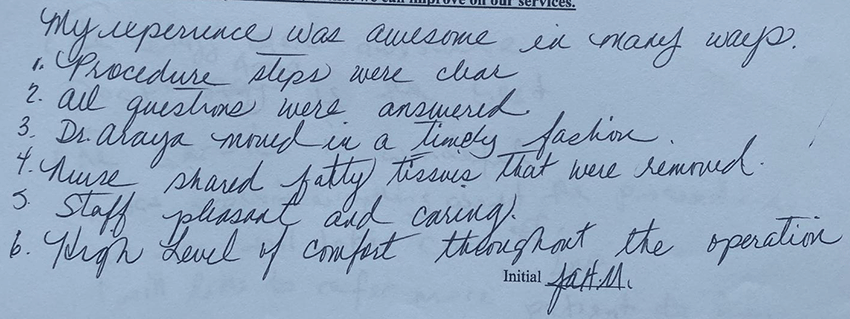 we can improve on our services.
My experience was awesome in many ways.
1. Procedure steps were clear
2. All questions were answered.
3. Dr. Araya moved in a timely fashion.
4. Nurse shared fatty tissues that were removed.
5. Staff pleasant and caring.
6. High Level of comfort throughout the operation
Initial